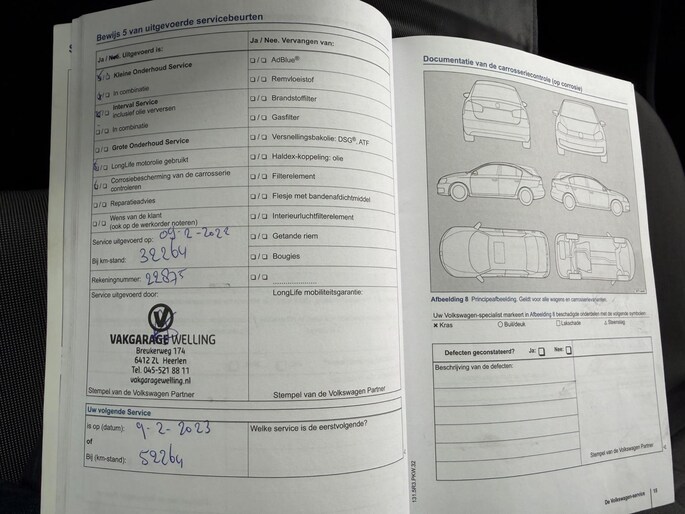 Bewijs 5 van uitgevoerde servicebeurten
Ja / Nee. Uitgevoerd is:
Kleine Onderhoud Service
In combinatie
Interval Service
inclusief olie verversen
In combinatie
Grote Onderhoud Service
LongLife motorolie gebruikt
Corrosiebescherming van de carrosserie
controleren
Reparatieadvies
Wens van de klant
(ook op de werkorder noteren)
Service uitgevoerd op: 09-2-2022
Bij km-stand: 39264
Rekeningnummer: 22875
Service uitgevoerd door:
VAKGARAGE WELLING
Breukerweg 174
6412 ZL Heerlen
Tel. 045-521 88 11
vakgaragewelling.nl
Stempel van de Volkswagen Partner
Uw volgende Service
is op (datum): 9-2-2023
of
Bij (km-stand): 59264
Ja / Nee. Vervangen van:
AdBlue®
Remvloeistof
Brandstoffilter
Gasfilter
Versnellingsbakolie: DSG®, ATF
Haldex-koppeling: olie
Filterelement
Flesje met bandenafdichtmiddel
Interieurluchtfilterelement
Getande riem
Bougies
LongLife mobiliteitsgarantie:
Stempel van de Volkswagen Partner
Welke service is de eerstvolgende?
Documentatie van de carrosseriecontrole (op corrosie)
Afbeelding 8 Principeafbeelding. Geldt voor alle wagens en carrosserievarianten.
Uw Volkswagen-specialist markeert in Afbeelding 8 beschadigde onderdelen met de volgende symbolen:
Kras Buil/deuk Lakschade Steenslag
Defecten geconstateerd? Ja: Nee:
Beschrijving van de defecten:
Stempel van de Volkswagen Partner
131.5R3.PKW.32
De Volkswagenservice 15